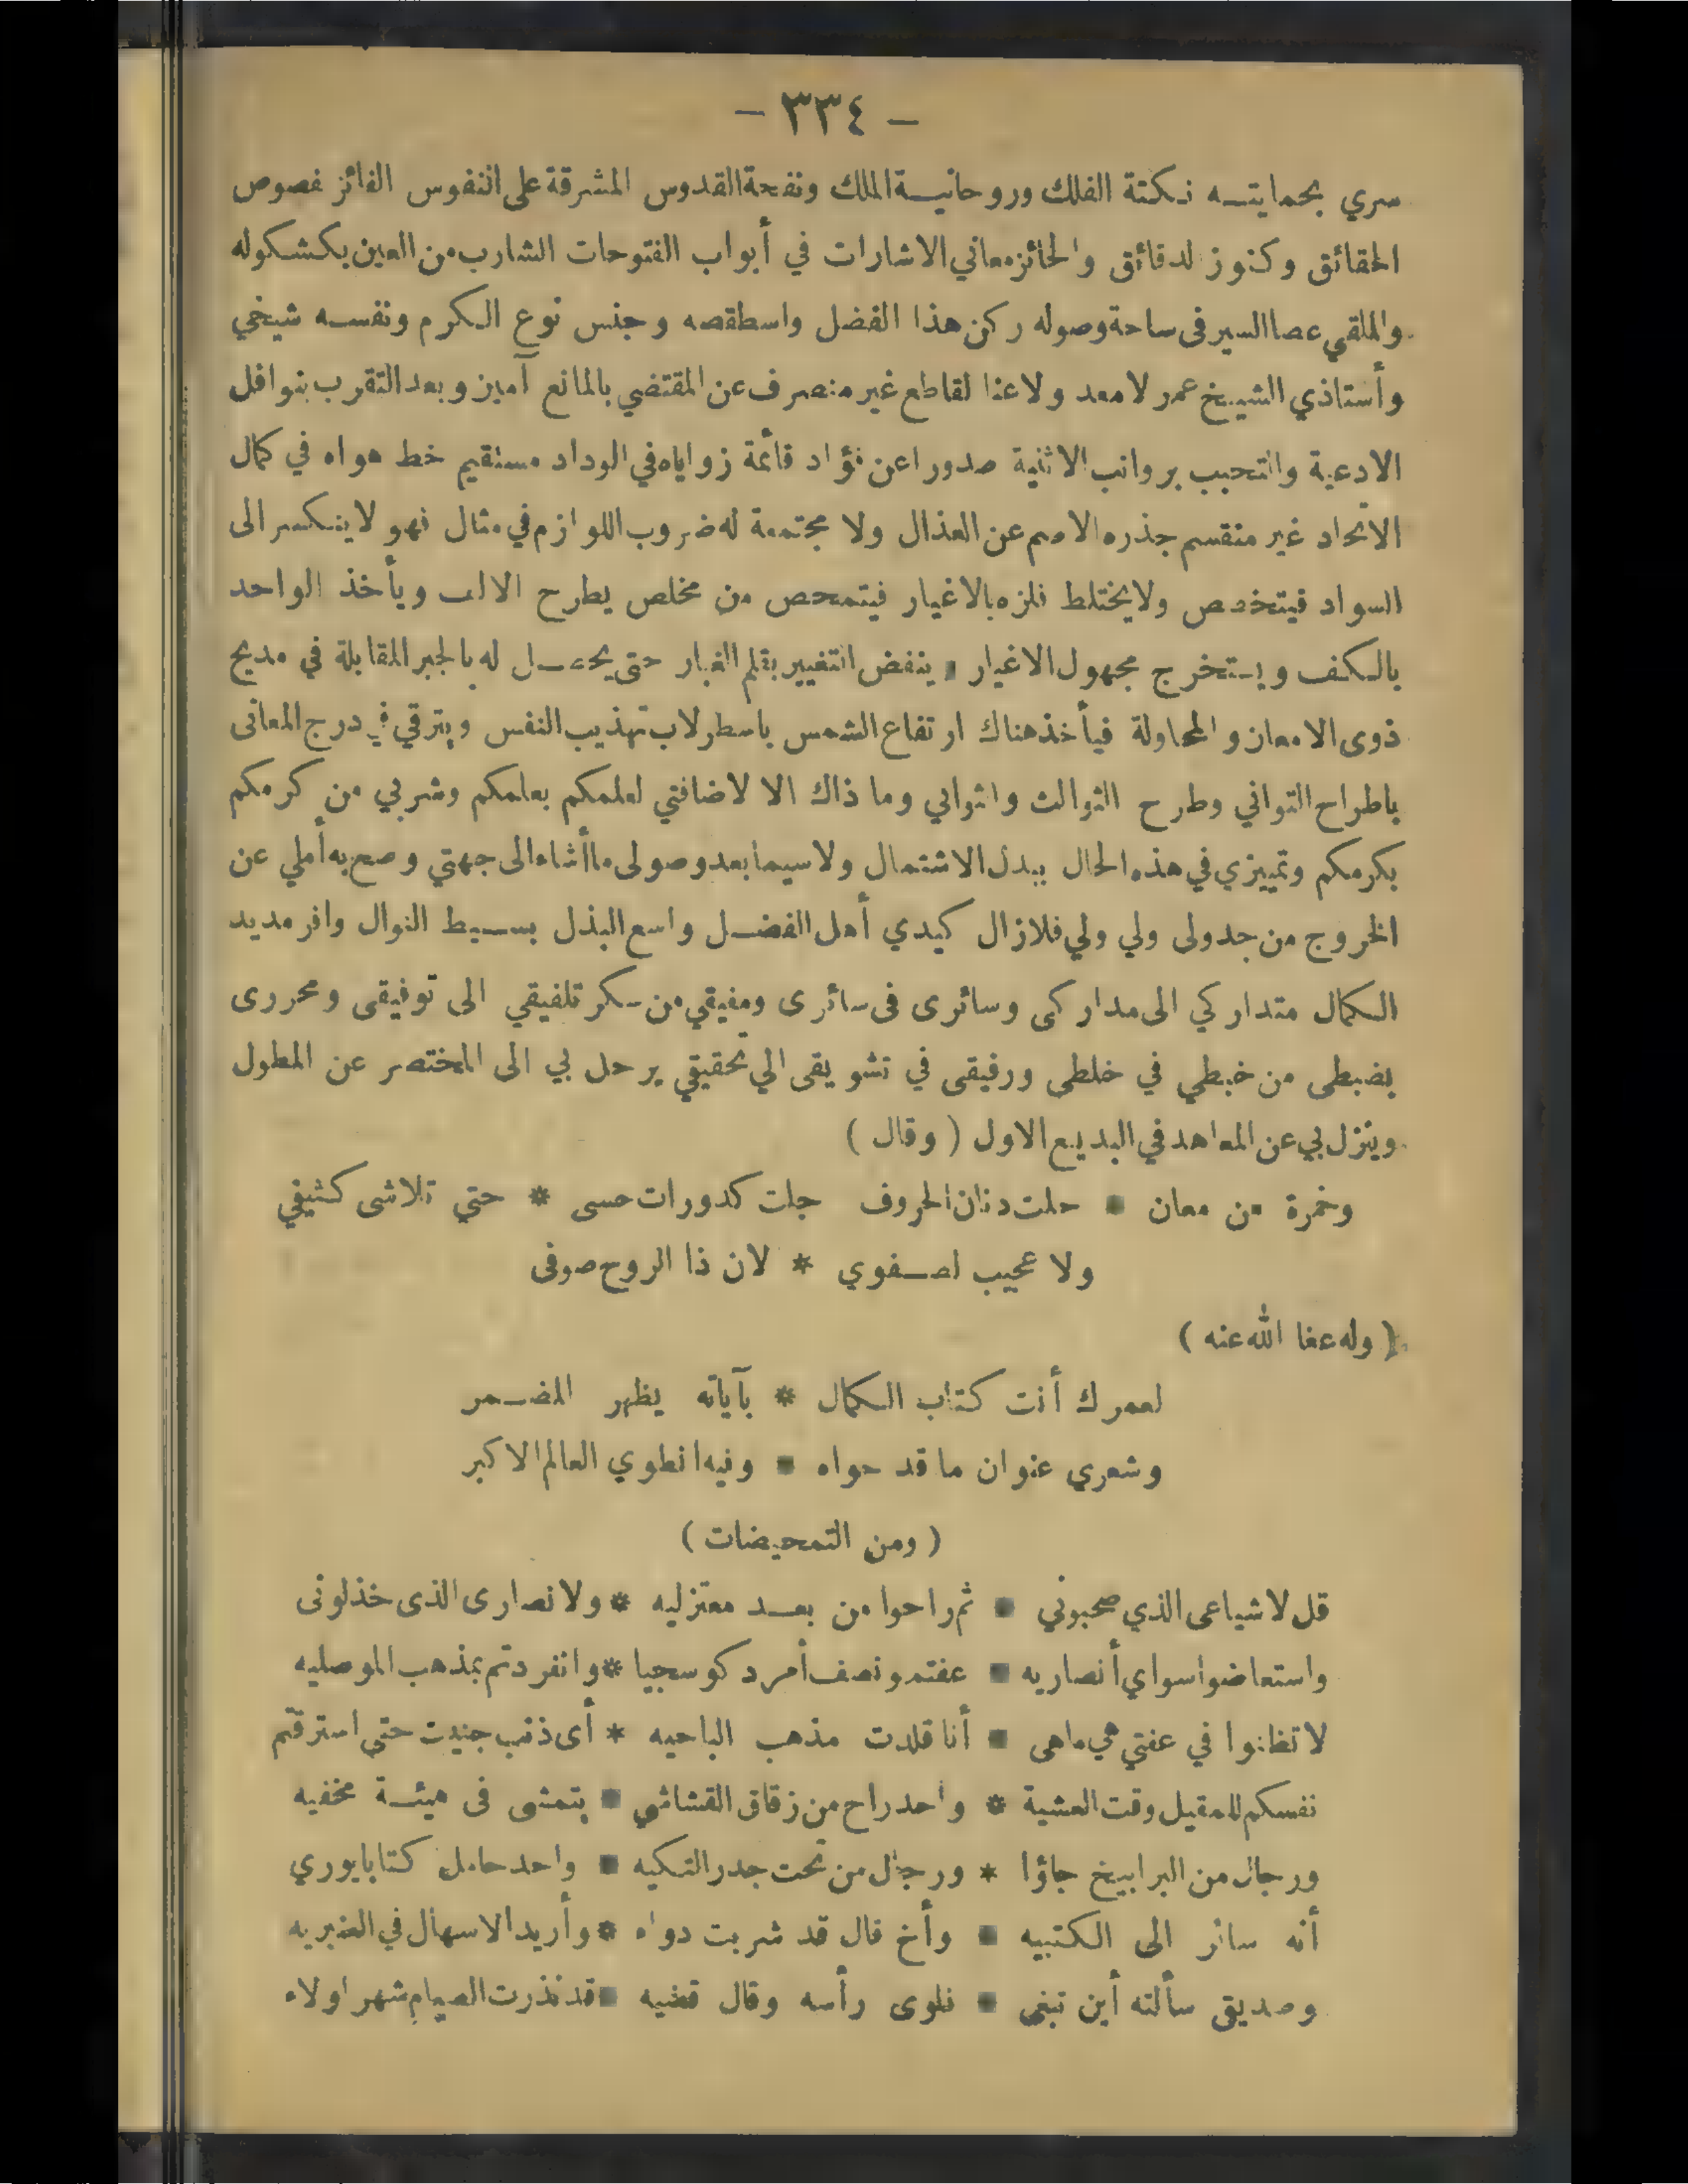 - ٣٣٤ -
سري بحمايتـه نـكتة الفلك وروحانيـة الملك ونفحة القدوس المشرقة على النفوس الفائز فصوص
الحقائق وكنوز لدقائق والحائز معاني الاشارات في أبواب الفتوحات الشارب من العين بكشكوله
والملقي عصا السير فى ساحة وصوله ركن هذا الفضل واسطقصه وجنس نوع الـكرم ونفسـه شيخي
وأستاذي الشيخ عمر لامعد ولا عنا لقاطع غير منصرف عن المقتضي بالمانع آمين وبعد التقرب بنوافل
الادعية والتحبب برواتب الاثنية صدورا عن فؤاد قائمة زواياه في الوداد مستقيم خط هواه في كمال
الاتحاد غير منقسم جذره الاصم عن العذال ولا مجتمعة له ضروب اللوازم في مثال فهو لا ينـكسر الى
السواد فيتخصص ولا يختلط فلزه بالاغيار فيتمحص من مخلص يطرح الالف ويأخذ الواحد
بالـكف ويستخرج مجهول الاغيار * ينفض التغيير بقلم الغبار حتى يحصـل له بالجبر المقابلة في مديح
ذوى الامعان والمحاولة فيأخذ هناك ارتفاع الشمس باسطرلاب تهذيب النفس ويترقي في درج المعانى
باطراح التواني وطرح الثوالث والثواني وما ذاك الا لاضافتي لعلمكم بعلمكم وشربي من كرمكم
بكرمكم وتمييزي في هذه الحال ببدل الاشتمال ولا سيما بعد وصولى ما أشاء الى جهتي وصع به أملي عن
الخروج من جدولى ولي ولي فلا زال كيدي أهل الفضـل واسع البذل بسـيط النوال وافر مديد
الـكمال متداركي الى مداركى وسائرى فى سائرى ومفيقي من سـكر تلفيقي الى توفيقى ومحررى
بضبطى من خبطي في خلطى ورفيقى في تشويقى الي تحقيقي يرحل بي الى المختصر عن المطول
وينزل بي عن المعاهد في البديع الاول ( وقال )
وخمرة من معان * حلت دنان الحروف جلت كدورات حسى * حتي تلاشى كثيفي
ولا عجيب لصـفوي * لان ذا الروح صوفى
( وله عفا الله عنه )
لعمرك أنت كتاب الـكمال * بآياته يظهر المضـمر
وشعري عنوان ما قد حواه * وفيه انطوي العالم الاكبر
( ومن التمحيضات )
قل لاشياعى الذي صحبوني * ثم راحوا من بعـد معتزليه * ولانصارى الذى خذلونى
واستعاضوا سواي أنصاريه * عفتم ونصف أمرد كوسجيا * وانفردتم بمذهب الموصليه
لا تظنوا في عفتي هي ماهى * أنا قلدت مذهب الباحيه * أى ذنب جنيت حتى استرقتم
نفسكم للمقيل وقت العشية * واحد راح من زقاق القشاشي * يتمشى فى هيئـة مخفيه
ورجال من البرابيخ جاؤا * ورجال من تحت جدر التـكيه * واحد حامل كتابا يوري
أنه سائر الى الكتبيه * وأخ قال قد شربت دواء * وأريد الاسهال في العنبريه
وصديقى سألته أين تبغى * فلوى رأسه وقال قضيه * قد نذرت الصيام شهرا ولاء